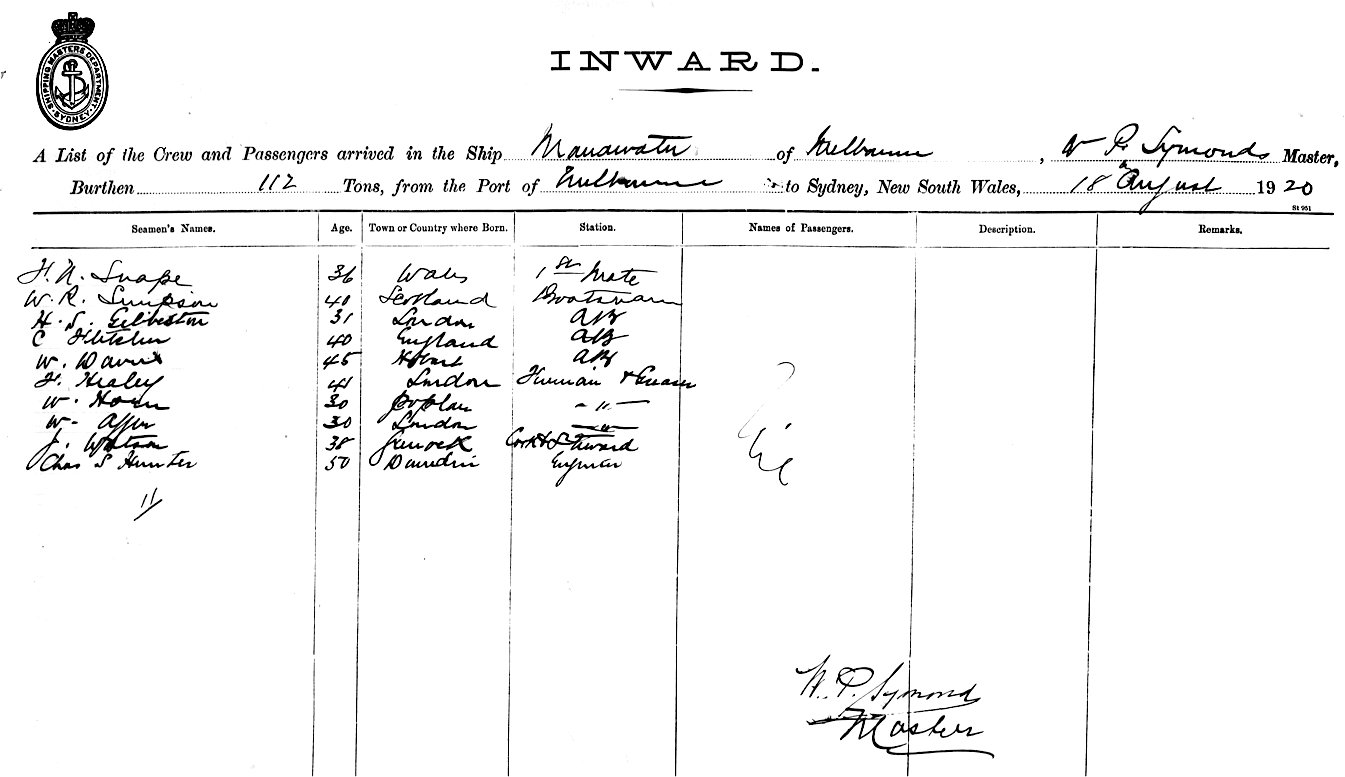 SHIPPING MASTERS DEPARTMENT SYDNEY
INWARD.
A List of the Crew and Passengers arrived in the Ship Manawatu of Melbourne, W P. Symonds Master,
Burthen 112 Tons, from the Port of Melbourne to Sydney, New South Wales, 18 August 1920
St 951
Seamen's Names. Age. Town or Country where Born. Station. Names of Passengers. Description. Remarks.
36 Wales 1st Mate
W. R. Simpson 40 Scotland Boatswain
H. S. 31 London AB
C Fletcher 40 England AB
W. Davis 45 Hobart AB
H. Healey 41 London Fireman & Greaser
W. Horn 30 Poplar - " -
W. 30 London - " -
J. Watson 38 Greenock Cook & Steward
Chas S Hunter 50 Dunedin
Nil
11
W. P. Symonds
Master